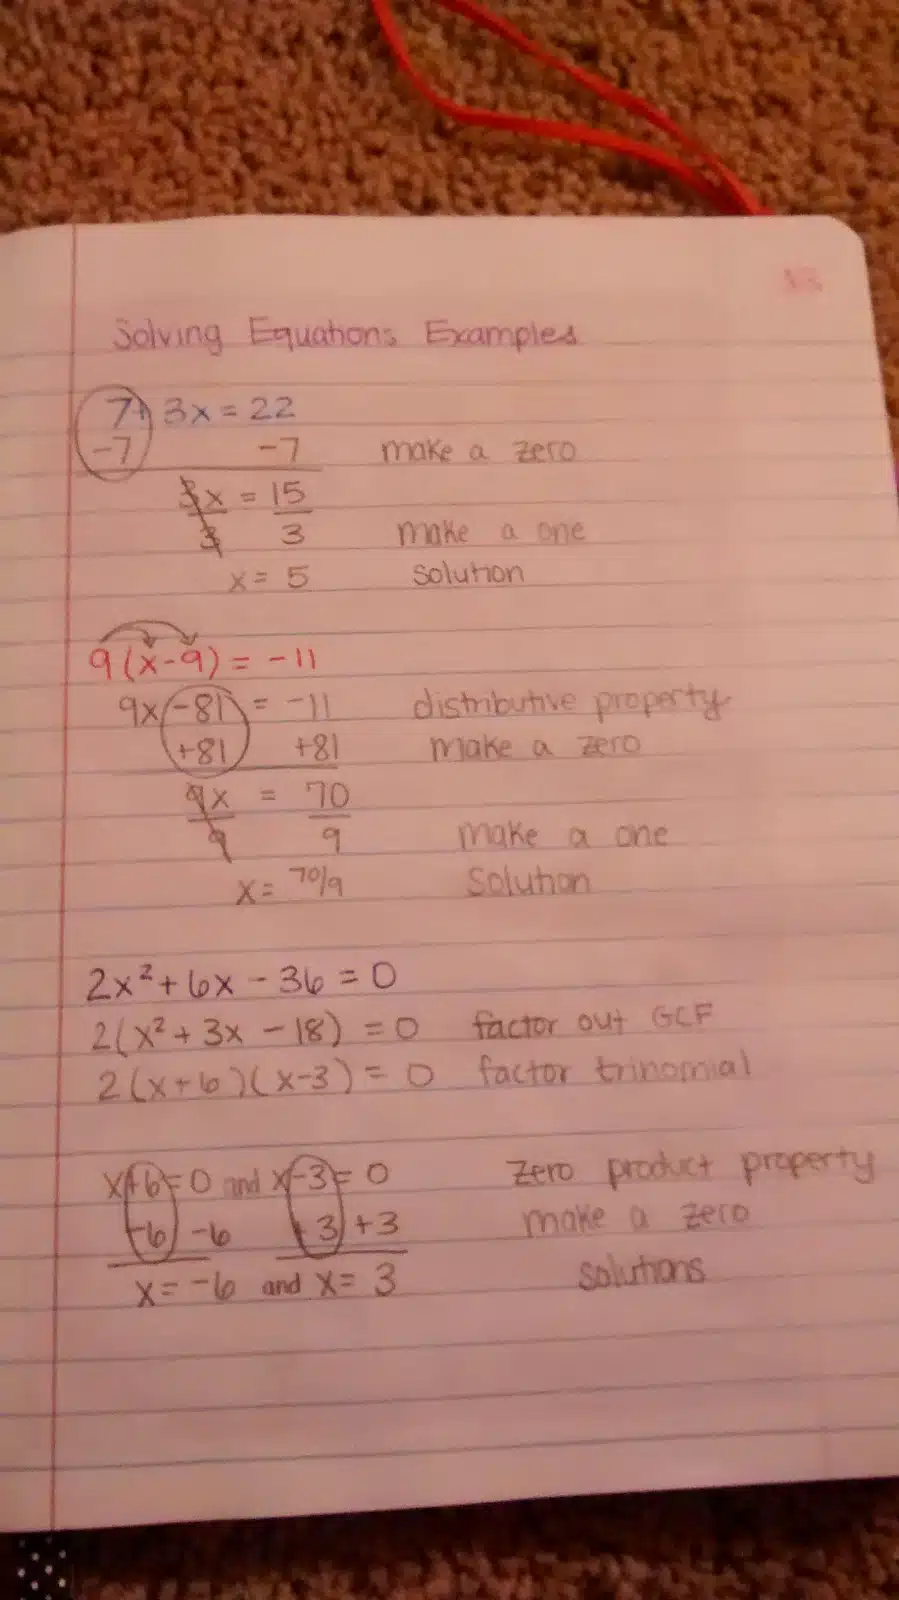 13
Solving Equations Examples
7+3x=22
-7 -7 make a zero
3x = 15
3 3 make a one
x = 5 solution
9(x-9) = -11
9x-81 = -11 distributive property
+81 +81 make a zero
9x = 70
9 9 make a one
x= 70/9 Solution
2x²+6x-36=0
2(x²+3x-18)=0 factor out GCF
2(x+6)(x-3)=0 factor trinomial
x+6=0 and x-3=0 zero product property
-6 -6 +3 +3 make a zero
x=-6 and x=3 solutions